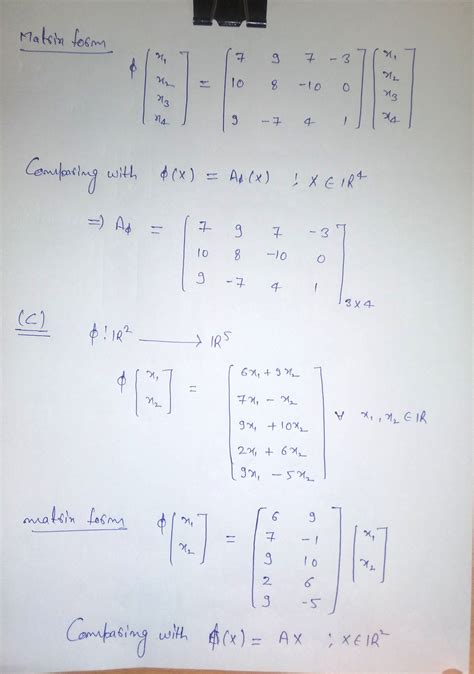 Matrix form
ϕ [x₁ x₂ x₃ x₄] = [7 9 7 -3; 10 8 -10 0; 9 -7 4 1] [x₁ x₂ x₃ x₄]
Comparing with ϕ(x) = Aϕ(x) ; X ∈ IR⁴
⇒ Aϕ = [7 9 7 -3; 10 8 -10 0; 9 -7 4 1] 3x4
(C) ϕ: IR² ⟶ IR⁵
ϕ [x₁ x₂] = [6x₁ + 9x₂; 7x₁ - x₂; 9x₁ + 10x₂; 2x₁ + 6x₂; 9x₁ - 5x₂] ∀ x₁, x₂ ∈ IR
matrix form ϕ [x₁ x₂] = [6 9; 7 -1; 9 10; 2 6; 9 -5] [x₁ x₂]
Comparing with ϕ(x) = AX ; X ∈ IR²